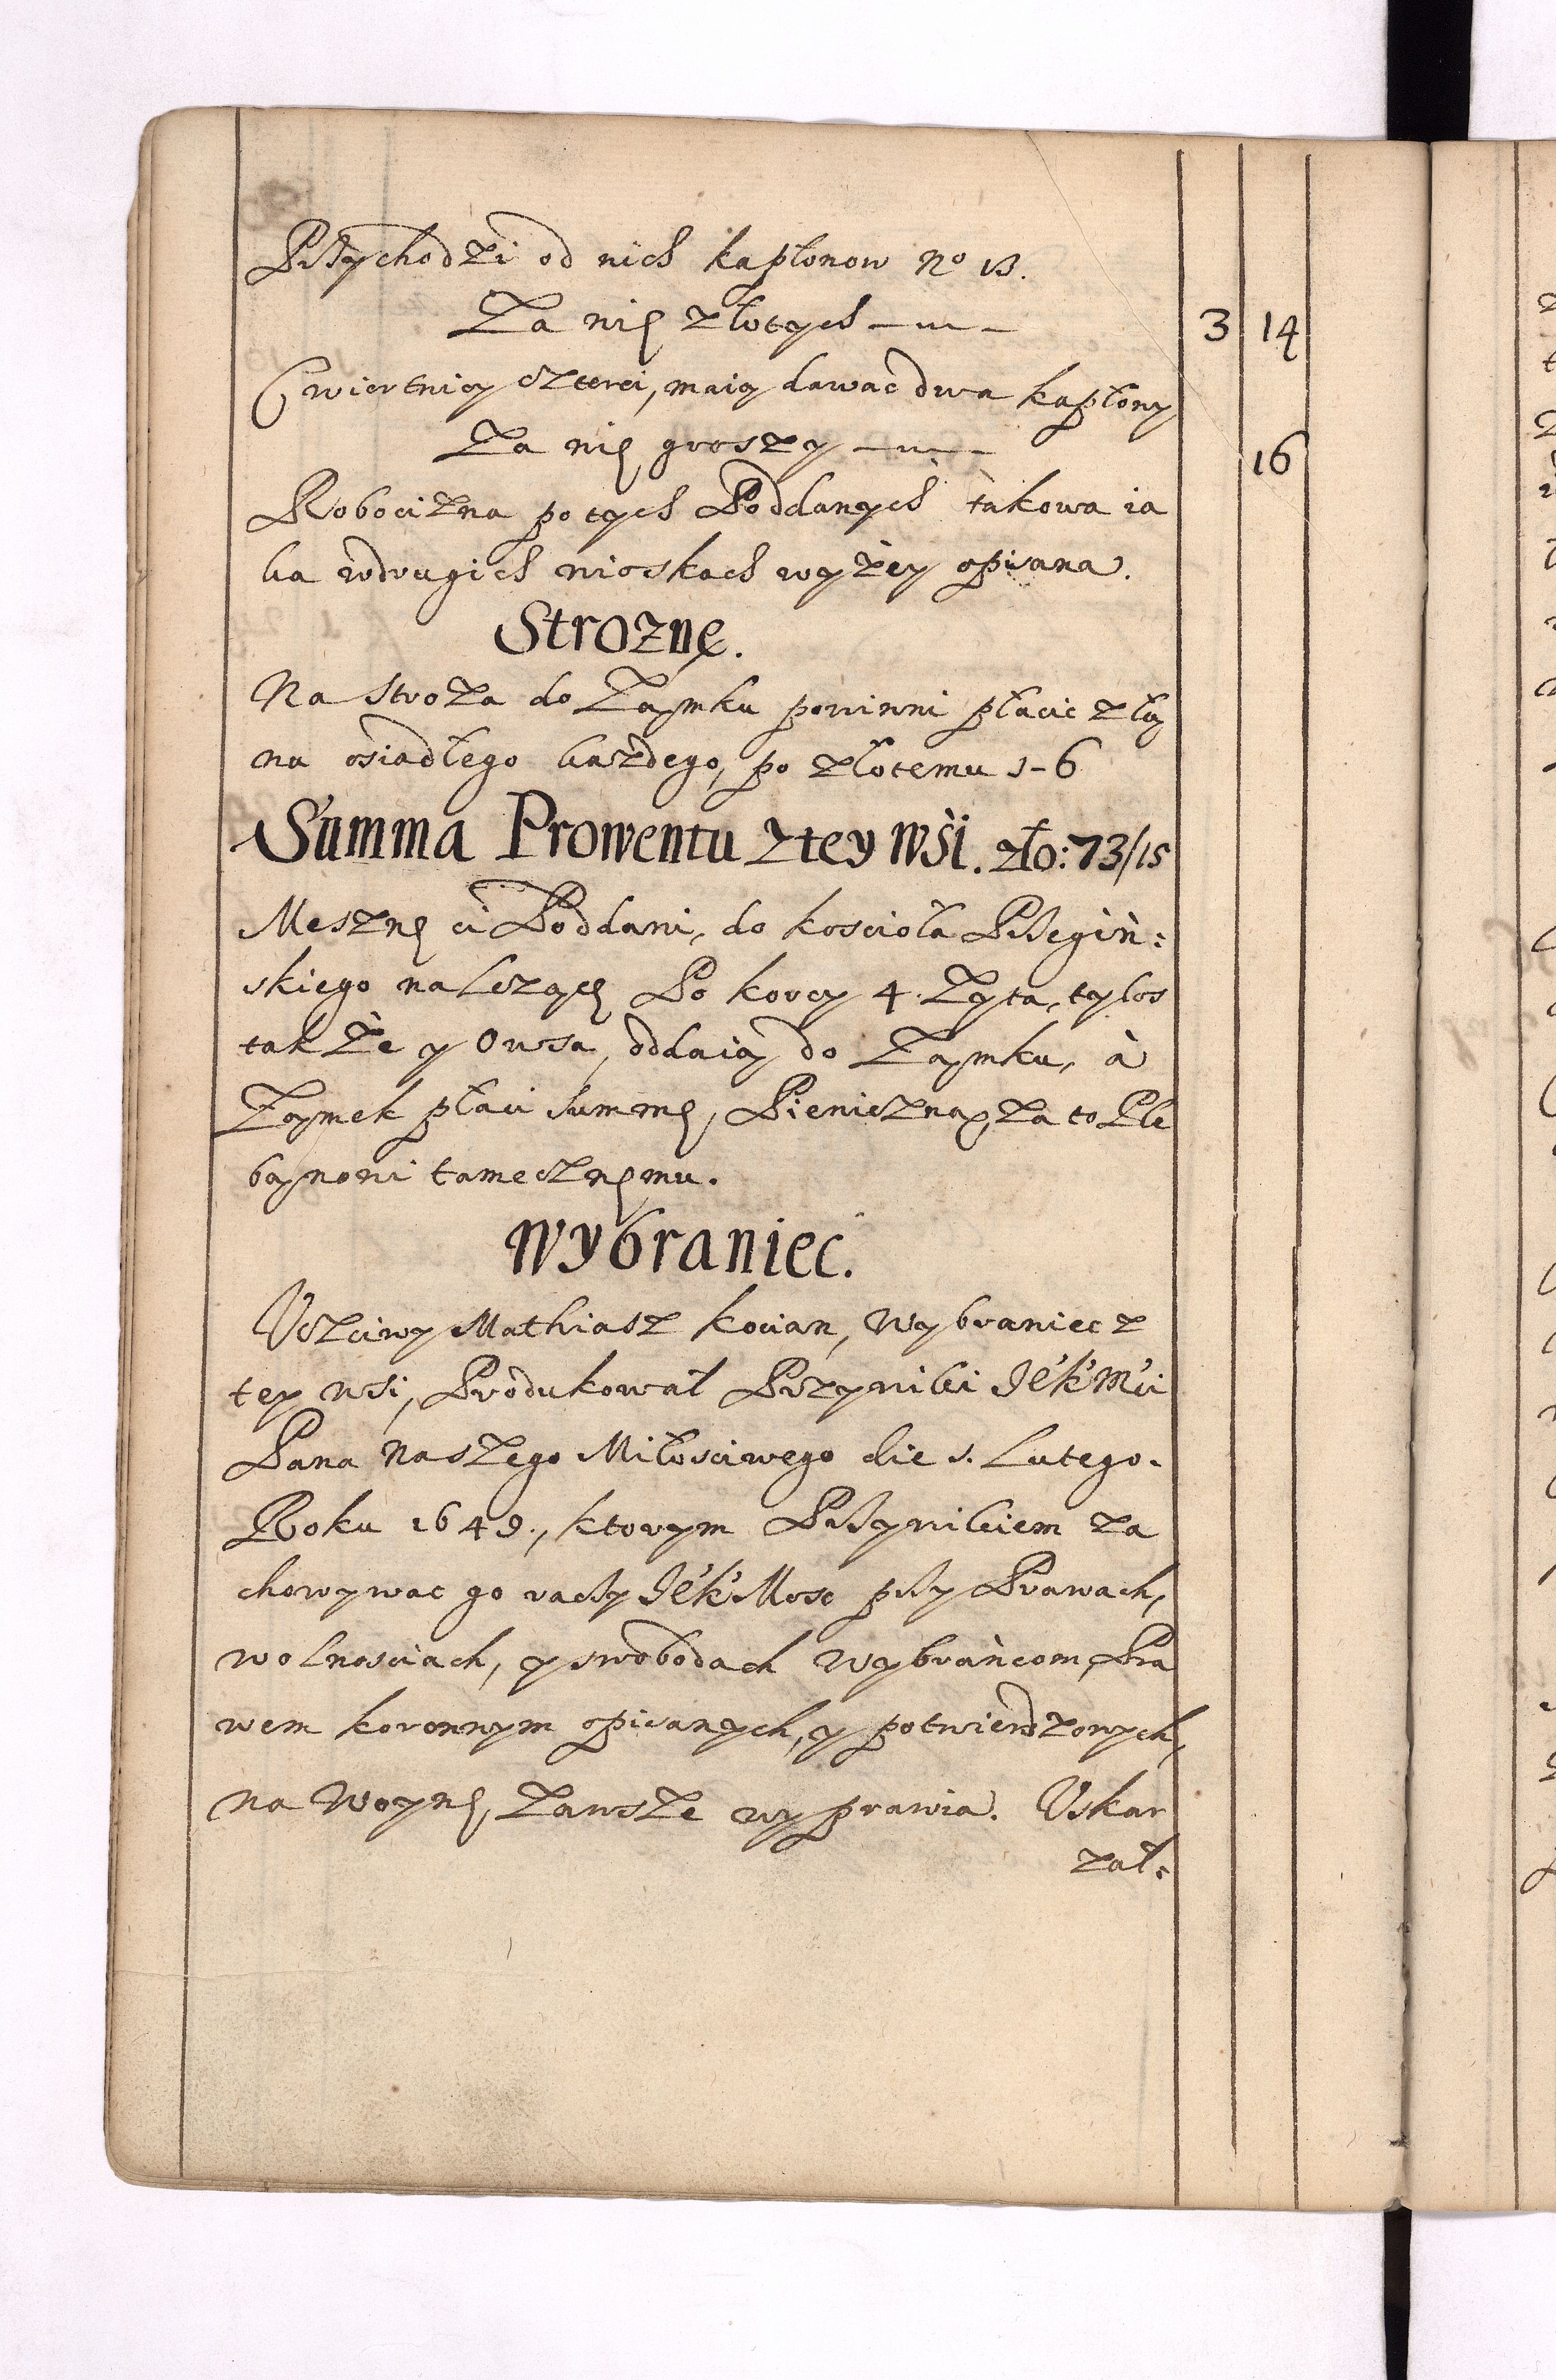 Przychodzi od nich kapłonow No 13.
Za nię złotych —„— 3 14
Cwiertnicy czterei, maią dawac dwa kapłony
Za nię groszy —„— 16
Robocizna po tych Poddanych takowa ia
ka wdrugich wioskach wyżey opisana.
Strozne.
Na Stroża do Zamku powinni płacic z łą
na osiadłego każdego, po złotemu 1-6
Summa Prowentu z tey Wśi. zło: 73/15
Meszne ci Poddani, do kosciołа Przegiń:
skiego należące Po korcy 4. Zyta, tylos
także y Owsa, oddaią do Zamku, à
Zamek płaci Summę, Pieniezną, za to Ple
banowi tamecznemu.
Wybraniec.
Vczciwy Mathiasz Kocian, Wybraniec z
tey wsi, Produkował Przywilei JeKMći
Pana Naszego Miłosciwego die 1. Lutego.
Roku 1649., ktorym Przywileiem za
chowywac go raczy JeKMosc przy Prawach,
wolnosciach, y swobodach Wybrańcom Pra
wem koronnym opisanych, y potwierdzonych,
na Woynę, zawsze wyprawia. Vskar
zał: